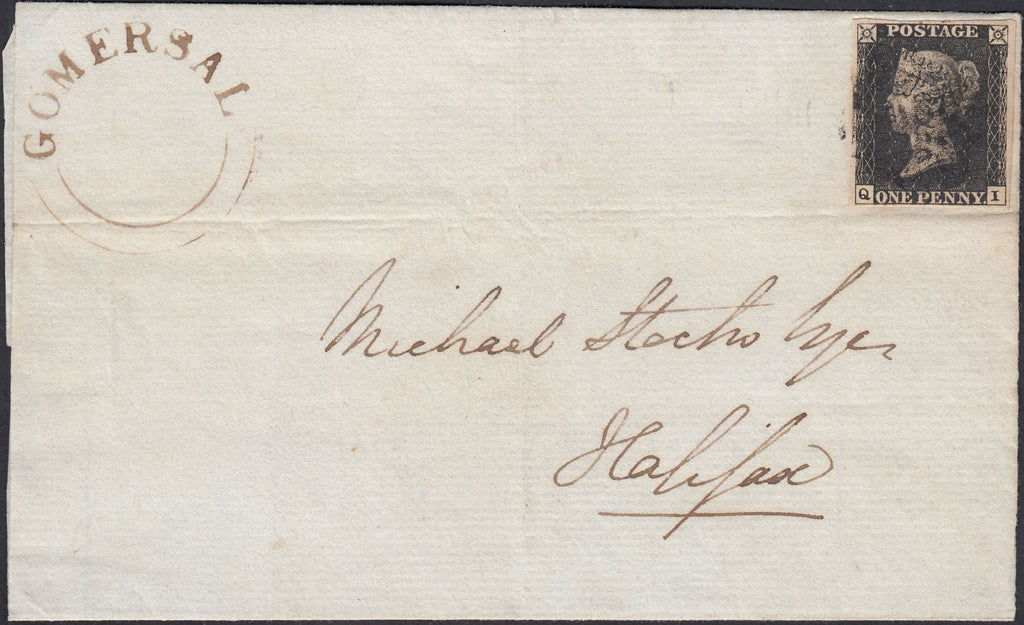 GOMERSAL
POSTAGE
Q ONE PENNY. I
Michael Stocks
Halifax